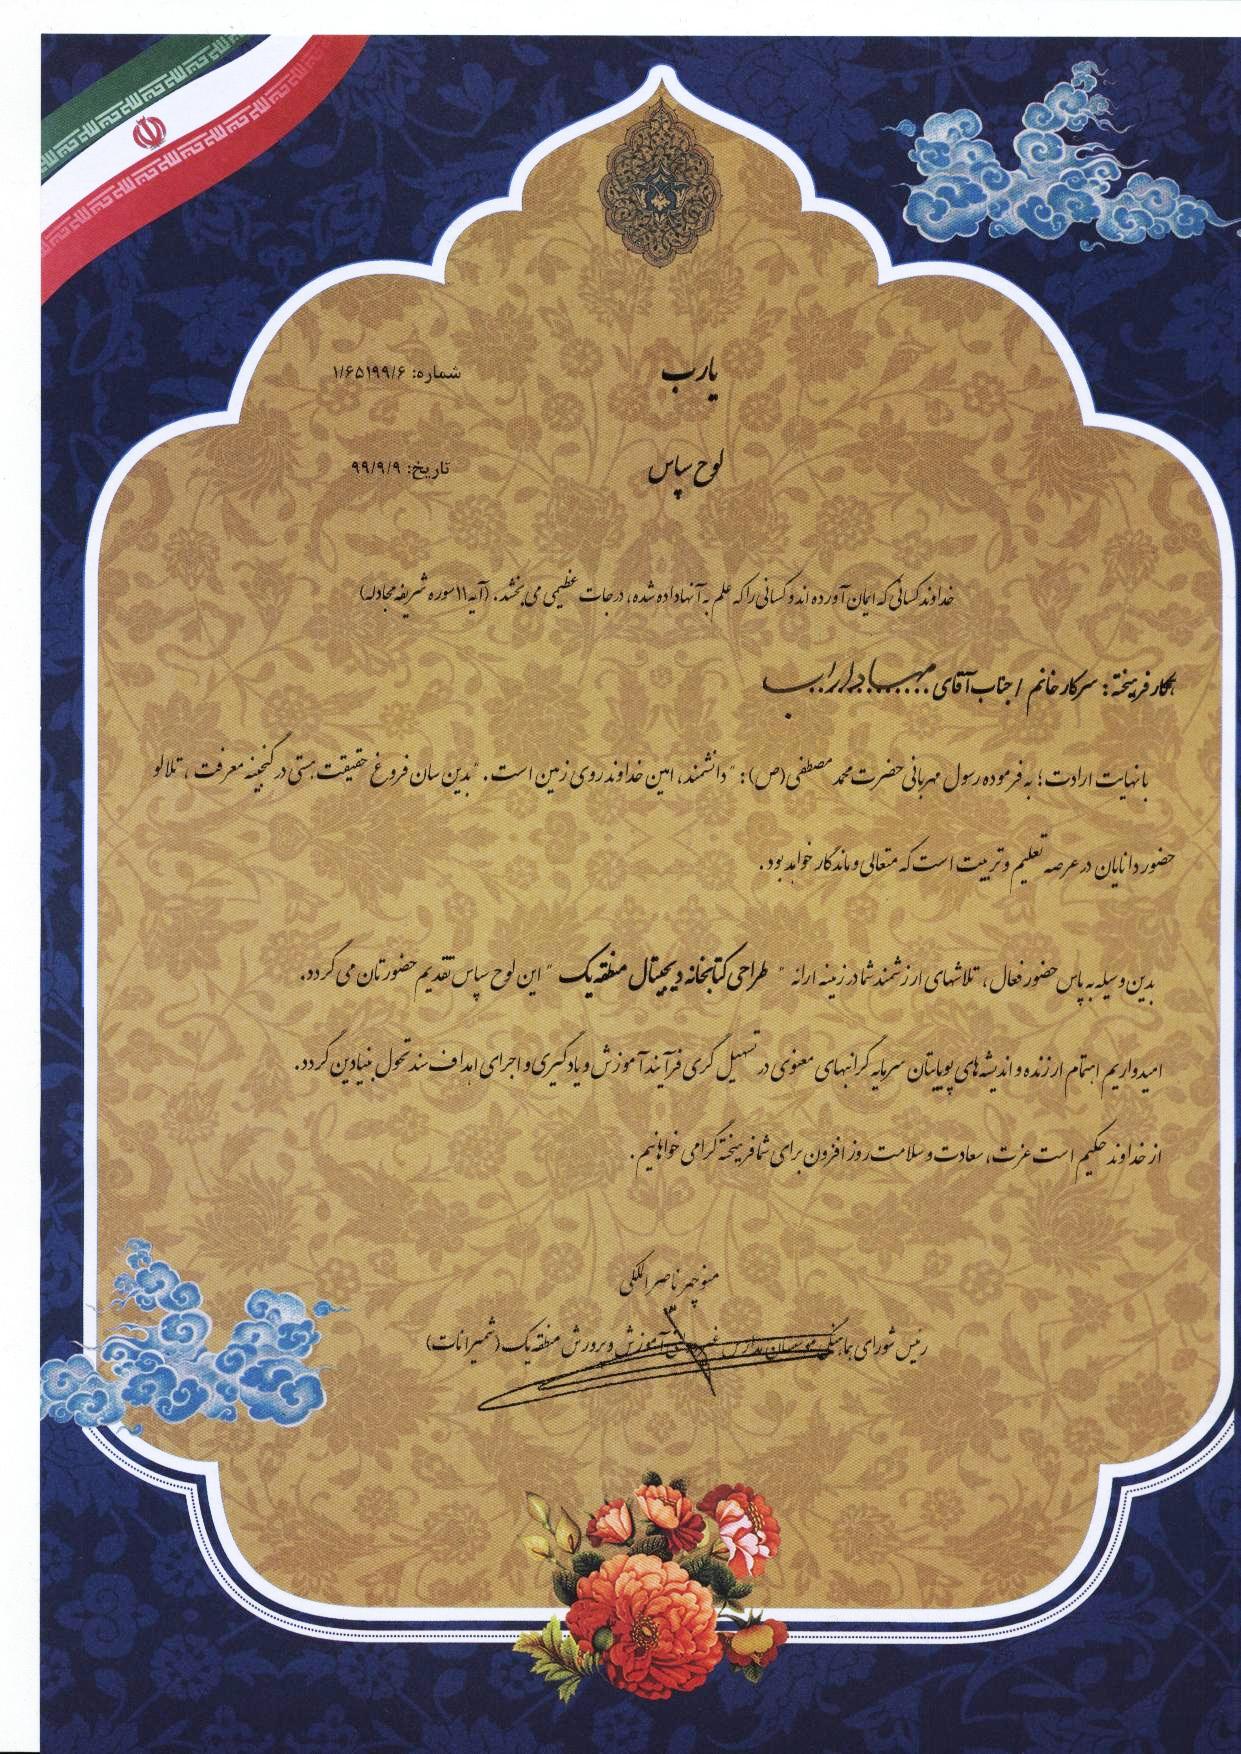 یارب
شماره: ۱/۶۵۱۹۹/۶
لوح سپاس
تاریخ: ۹۹/۹/۹
خداوند کسانی که ایمان آورده اند و کسانی را که علم به آنها داده شده، درجات عظیمی می بخشد. (آیه ۱۱ سوره شریفه مجادله)
همکار فرهیخته: سرکار خانم / جناب آقای مهسا داراب
با نهایت ارادت؛ به فرموده رسول مهربانی حضرت محمد مصطفی (ص): "دانشمند، امین خداوند روی زمین است." بدین سان فروغ حقیقت هستی در گنجینه معرفت، تلالو
حضور دانایان در عرصه تعلیم و تربیت است که متعالی و ماندگار خواهد بود.
بدین وسیله به پاس حضور فعال، تلاشهای ارزشمند شما در زمینه ارائه " طراحی کتابخانه دیجیتال منطقه یک " این لوح سپاس تقدیم حضورتان می گردد.
امیدواریم اهتمام ارزنده و اندیشه های پویایتان سرمایه گرانبهای معنوی در تسهیل گری فرآیند آموزش و یادگیری و اجرای اهداف سند تحول بنیادین گردد.
از خداوند حکیم است عزت، سعادت و سلامت روز افزون برای شما فرهیخته گرامی خواهانیم.
منوچهر ناصرالملکی
رئیس شورای هماهنگی موسسان مدارس غیردولتی آموزش و پرورش منطقه یک (شمیرانات)